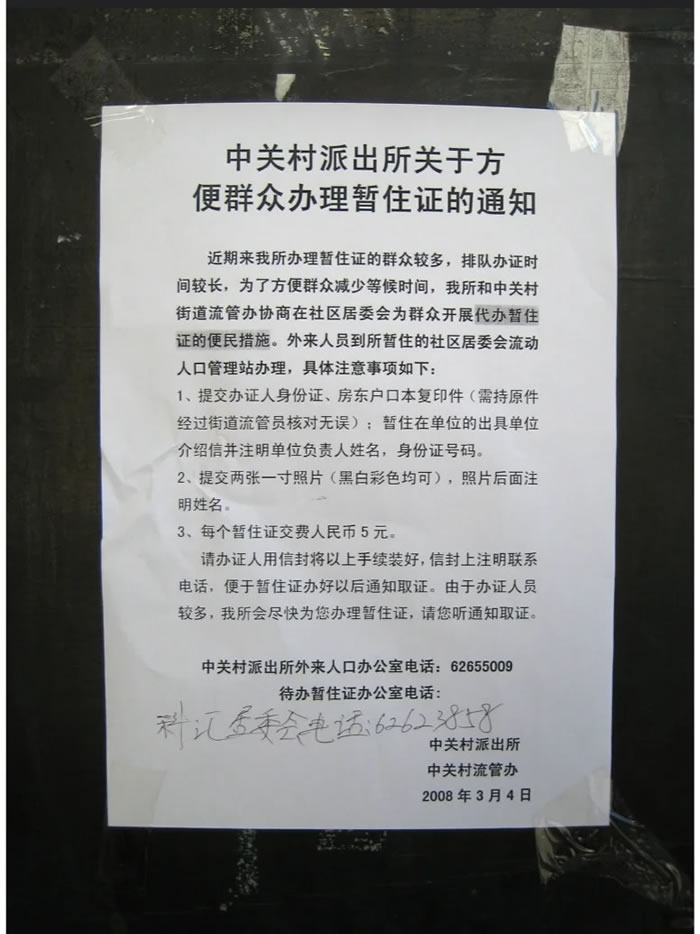 中关村派出所关于方
便群众办理暂住证的通知
近期来我所办理暂住证的群众较多，排队办证时
间较长，为了方便群众减少等候时间，我所和中关村
街道流管办协商在社区居委会为群众开展代办暂住
证的便民措施。外来人员到所暂住的社区居委会流动
人口管理站办理，具体注意事项如下：
1、提交办证人身份证、房东户口本复印件（需持原件
经过街道流管员核对无误）；暂住在单位的出具单位
介绍信并注明单位负责人姓名，身份证号码。
2、提交两张一寸照片（黑白彩色均可），照片后面注
明姓名。
3、每个暂住证交费人民币5元。
请办证人用信封将以上手续装好，信封上注明联系
电话，便于暂住证办好以后通知取证。由于办证人员
较多，我所会尽快为您办理暂住证，请您听通知取证。
中关村派出所外来人口办公室电话：62655009
待办暂住证办公室电话：
科汇居委会电话：62623858
中关村派出所
中关村流管办
2008年3月4日